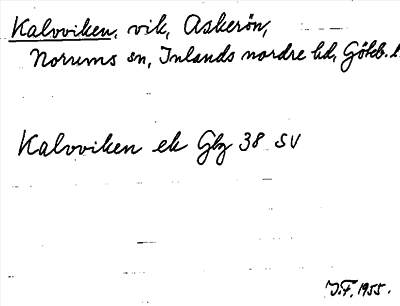 Kalvviken, vik, Askerön,
Norums sn, Inlands nordre hd, Göteb. l.
Kalvviken ek Gbg 38 SV
J.F. 1955.